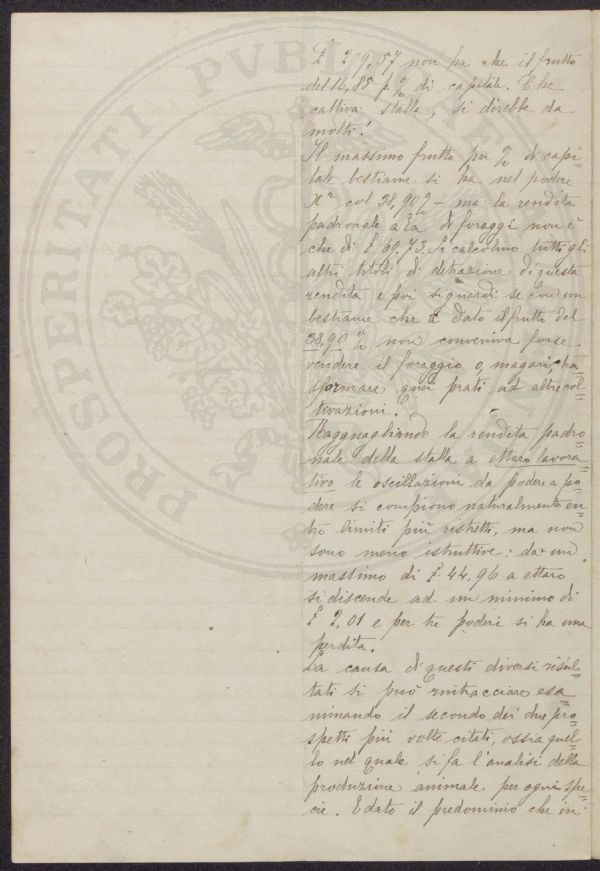 PROSPERITATI PVBLICAE
£ 209,57 non ha che il frutto
del 16,85 p % di capitale. Che
cattiva stalla, si direbbe da
molti!
Il massimo frutto per % di capi=
tale bestiame si ha nel podere
col 38,90 % – ma la rendita
padronale a Ea di foraggi non è
che di £ 69,73. Si calcolino tutti gli
altri titoli di detrazione di questa
rendita e poi si guardi se con un
bestiame che à dato il frutto del
38,90 % non conveniva forse
vendere il foraggio o, magari, tra
sformare quei prati ad altre col=
tivazioni.
Ragguagliando la rendita padro=
nale della stalla a ettaro lavora=
tivo le oscillazioni da podere a po=
dere si compiono naturalmente en=
tro limiti più ristretti, ma non
sono meno istruttive: da un
massimo di £ 44,96 a ettaro
si discende ad un minimo di
£ 2,01 e per tre poderi si ha una
perdita.
La causa di questi diversi risul=
tati si può rintracciare esa=
minando il secondo dei due pro=
spetti più volte citati, ossia quel=
lo nel quale si fa l'analisi della
produzione animale per ogni spe=
cie. E dato il predominio che in=